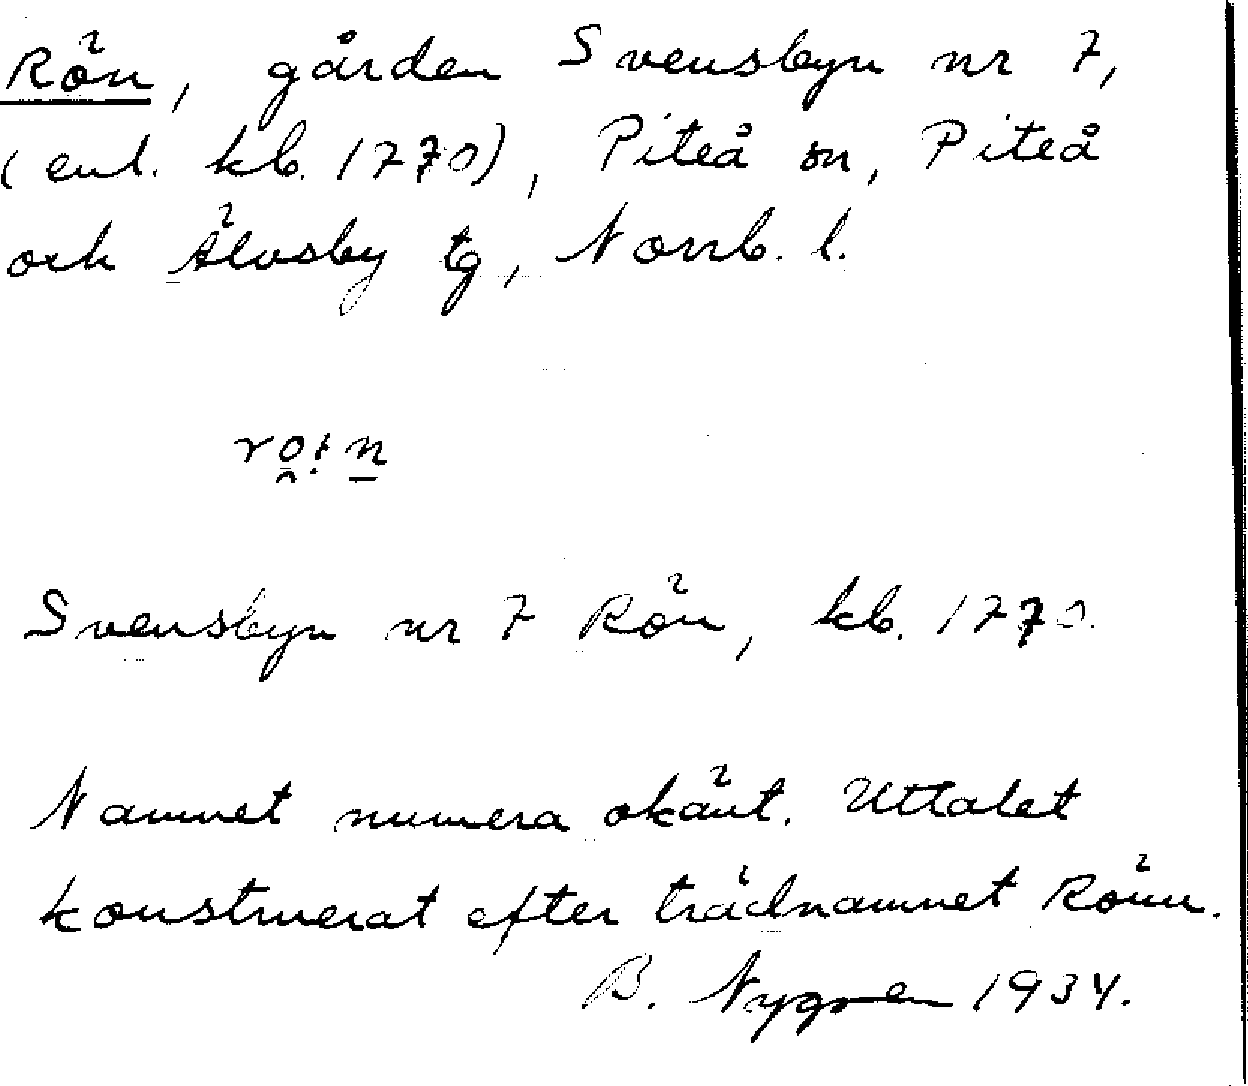 Rön, gården Svensbyn nr 7,
(enl. kb. 1770), Piteå sn, Piteå
och Älvsby tg, Norrb. l.
Svensbyn nr 7 Rön, kb. 1770.
Namnet numera okänt. Uttalet
konstruerat efter trädnamnet Rönn.
B. Nygren 1934.